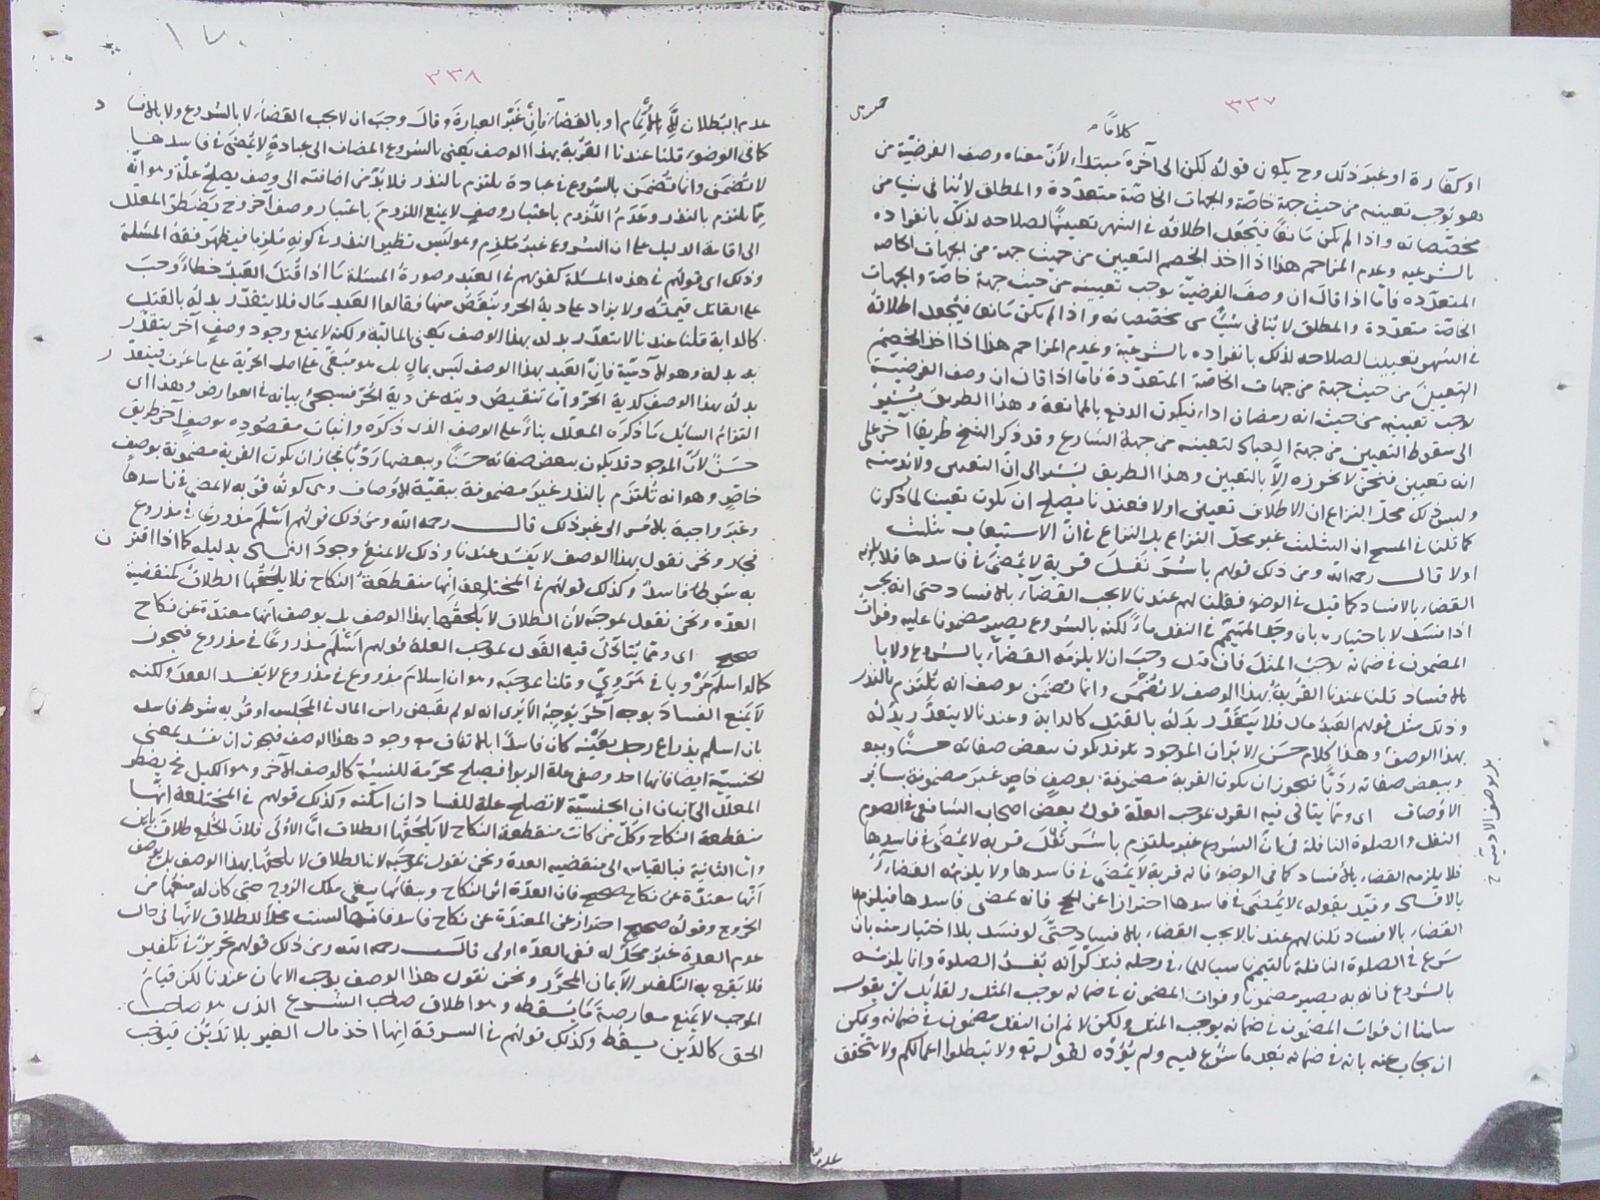 ٣٣٧
كلامًا
او كفارة او غير ذلك وح يكون قوله لكن الى آخره مبتداء لأن معناه وصف الفرضية من
هو يوجب تعيينه من حيث جهة خاصة والجهات الخاصة متعددة والمطلق لا ينافى شيا من
مخصصاته واذا لم يكن مانعًا فيجعل اطلاقه فى الشهر تعيينًا لصلاحه لذلك بانفراده
بالشرعيه وعدم المزاحم هذا اذا اخذ الخصم التعيين من حيث جهة من الجهات الخاصه
المتعدده فاما اذا قال ان وصف الفرضية يوجب تعيينه من حيث جهة خاصة والجهات
الخاصة متعددة والمطلق لا ينافى شيئًا من مخصصاته واذا لم يكن مانعا فيجعل اطلاقه
فى الشهر تعيينا لصلاحه لذلك بانفراده بالشرعية وعدم المزاحم هذا اذا اخذ الخصم
التعيين من حيث جهة من جهات الخاصة المتعددة فاما اذا قال ان وصف الفرضية
يوجب تعيينه من حيث انه رمضان اداء فيكون الدفع بالممانعة وهذا الطريق يشير
الى سقوط التعيين من جهة العباد لتعينه من جهة الشارع وقد ذكر الشيخ طريقا آخر على
انه تعيين فنحن لا نجوزه الا بالتعيين وهذا الطريق يشير الى ان التعيين ولا بد منه
وليس ذلك محل النزاع ان الاطلاق تعيين او لا فعندنا يصلح ان يكون تعيينا لما ذكرنا
كما قلنا فى المسح ان التثليث غير محل النزاع بل النزاع فى ان الاستيعاب تثليث
او لا قال رحمه الله ومن ذلك قولهم باشر نفل قربة لا يمضى فى فاسدها فلا يلزمه
القضاء بالافساد كما قيل فى الوضوء فقلنا لهم عندنا لا يجب القضاء بالافساد حتى انه يجب
اذا فسد لا باختياره بان وجد المتيمم فى النفل ماءً لكنه بالشروع يصير مضمونا عليه وفوات
المضمون فى ضمانه يوجب المثل فان قيل وجب ان لا يلزمه القضاء بالشروع ولا با
بالافساد قلنا عندنا القربة بهذا الوصف لا تضمن وانما تضمن بوصف انه يلتزم بالنذر
وذلك مثل قولهم العبد مال فلا يتقدر بدله بالقتل كالدابة وعندنا لا يتقدر بدله
بهذا الوصف وهذا كلام حسن الا ترى ان الموجود قد يكون ببعض صفاته حسنًا وببعـ
وببعض صفاته رديًا فيجوز ان يكون القربة مضمونة بوصف خاص غير مضمونة بسائر
الاوصاف اى ومما يتاتى فيه القول بموجب العلة قول بعض اصحاب الشافعى فى الصوم
النفل والصلوة النافلة فى ان الشروع غير ملتزم باشر نفل قربه لا يمضى فى فاسدها
فلا يلزمه القضاء بالافساد كما فى الوضوء فانه قربة لا يمضى فى فاسدها ولا يلزمه القضاء
بالافساد وقيد بقوله لا يمضى فى فاسدها احترازا عن الحج فانه يمضى فى فاسدها فيلزمه
القضاء بالافساد قلنا لهم عندنا لا يجب القضاء بالافساد حتى لو فسد بلا اختيار منه بان
شرع فى الصلوة النافلة بالتيمم ناسيا للماء فى رحله فتذكر انه يفسد الصلوة وانما يلزمه
بالشروع فانه به يصير مضمونا وفوات المضمون فى ضمانه يوجب المثل ولقائل ان يقول
سلمنا ان فوات المضمون فى ضمانه يوجب المثل ولكن لا نم ان النفل مضمون فى ضمانه ويمكن
ان يجاب عنه بانه فى ضمانه بعد ما شرع فيه ولم يؤده لقوله تع ولا تبطلوا اعمالكم ولا يتحقق
عدم
٣٣٨
عدم البطلان الا بالاتمام او بالقضاء فان غير العبارة وقال وجب ان لا يجب القضاء لا بالشروع ولا بالافسا
كما فى الوضوء قلنا عندنا القربة بهذا الوصف يعنى بالشروع المضاف الى عبادة لا يمضى فى فاسدها
لا تضمن وانما تضمن بالشروع فى عبادة يلتزم بالنذر فلا بد من اضافته الى وصف يصلح علة وهو انه
مما يلتزم بالنذر وعدم اللزوم باعتبار وصف لا يمنع اللزوم باعتبار وصف آخر وح يضطر المعلل
الى اقامة الدليل على ان الشروع غير ملزم وليس نظير النذر فى كونه ملزما فيظهر فقه المسئلة
وذلك اى قولهم فى هذه المسئلة كقولهم فى العبد وصورة المسئلة ما اذا قتل العبد خطاء وجب
على القاتل قيمته ولا يزاد على دية الحر وينقص منها فقالوا العبد مال فلا يتقدر بدله بالقتل
كالدابة قلنا عندنا لا يتقدر بدله بهذا الوصف يعنى المالية ولكنه لا يمنع وجود وصف آخر يتقدر
به بدله وهو الآدمية فان العبد بهذا الوصف ليس بمال بل هو مبقى على اصل الحرية على ما عرف فيتقدر
بدله بهذا الوصف كدية الحر واما تنقيص ديته عن دية الحر فسيجئ بيانه فى العوارض وهذا اى
التزام السائل ما ذكره المعلل بناءً على الوصف الذى ذكره واثبات مقصوده بوصف آخر طريق
حسن لان الموجود قد يكون ببعض صفاته حسنًا وببعضها رديًا فجاز ان يكون القربة مضمونة بوصف
خاص وهو انه تلتزم بالنذر غير مضمونة ببقية الاوصاف وهى كونه قربه لا يمضى فى فاسدها
وغير واجبة بالامس الى غير ذلك قال رحمه الله ومن ذلك قولهم اسلم مذروعا فى مذروع
فجاز ونحن نقول بهذا الوصف لا يفسد عندنا وذلك لا يمنع وجود الفساد بدليله كما اذا اقترن
به شرط فاسد وكذلك قولهم فى المختلعة انها منقطعة النكاح فلا يلحقها الطلاق كمنقضية
العدة ونحن نقول بموجبه لان الطلاق لا يلحقها بهذا الوصف بل بوصف انها معتدة عن نكاح
صحيح اى ومما يتاتى فيه القول بموجب العلة قولهم اسلم مذروعًا فى مذروع فيجوز
كما لو اسلم هرويا فى مروي وقلنا بموجبه وهو ان اسلام مذروع فى مذروع لا يفسد العقد ولكنه
لا يمنع الفساد بوجه آخر يوجبه الا يرى انه لو لم يقبض راس المال فى المجلس او قرن به شرط فاسد
بان اسلم بذراع رجل بعينه كان فاسدًا بالاتفاق مع وجود هذا الوصف فيجوز ان يفسد بمعنى
الجنسية ايضا فانها احد وصفى علة الربوا فيصلح محرمة للنسيئة كالوصف الآخر وهو الكيل فح يضطر
المعلل الى بيان ان الجنسية لا تصلح علة للفساد ان امكنه وكذلك قولهم فى المختلعة انها
منقطعة النكاح وكل من كانت منقطعة النكاح لا يلحقها الطلاق اما الاولى فلان الخلع طلاق باين
واما الثانية فبالقياس الى منقضيه العدة ونحن نقول بموجبه لان الطلاق لا يلحقها بهذا الوصف بل بوصف
انها معتدة عن نكاح صحيح فان العدة اثر النكاح وببقائها يبقى ملك الزوج حتى كان له منعها من
الخروج وقوله صحيح احتراز عن المعتدة عن نكاح فاسد فانها ليست محلًا للطلاق لانها فى حال
عدم العدة غير محل له ففى العدة اولى قال رحمه الله ومن ذلك قولهم تحرير فى تكفير
فلا يقع به التكفير الا بايمان المحرر ونحن نقول هذا الوصف يوجب الايمان عندنا لكن قيام
الموجب لا يمنع معارضة ما يسقطه وهو اطلاق صاحب الشرع الذى هو صاحب
الحق كالدين يسقط وكذلك قولهم فى السرقة انها اخذ مال الغير بلا تدين فيوجب